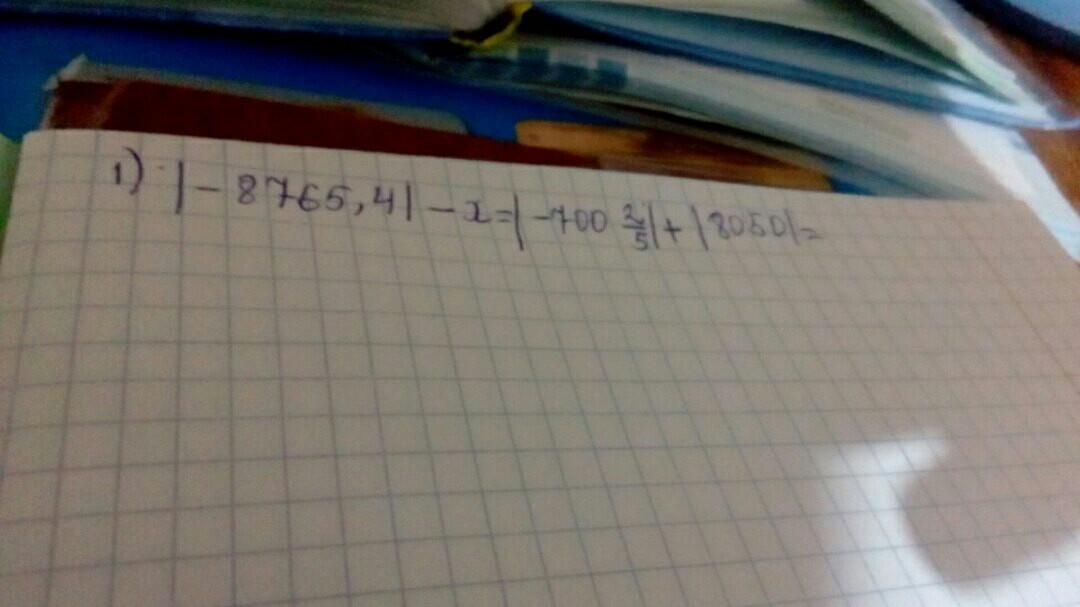 1) |-8765,4|-x=|-700 2/5|+|8050|=